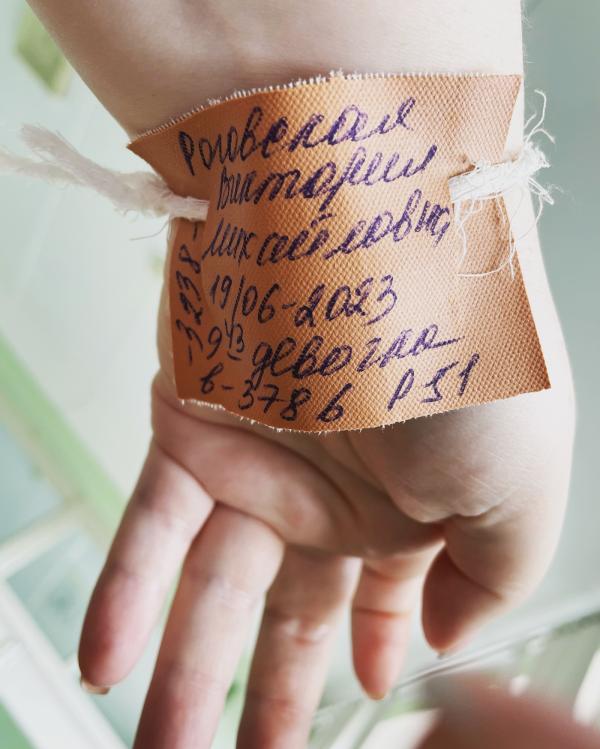 Роговская
Виктория
Михайловна
19/06-2023
9 13 девочка
в-3786 Р51
-3238